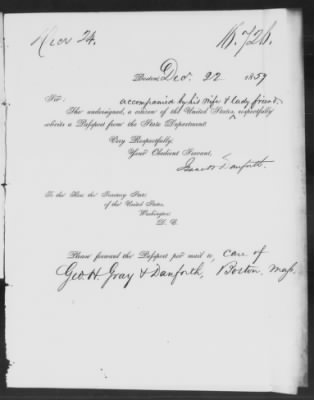 24.
Boston, Dec. 22 1859
Sir:
accompanied by his wife & lady friend
The undersigned, a citizen of the United States, respectfully
solicits a Passport from the State Department.
Very Respectfully,
Your Obedient Servant,
Danforth.
To the Hon. the Secretary State
of the United States,
Washington
D. C.
Please forward the Passport per mail to, care of
Geo. H. Gray & Danforth, Boston, Mass.